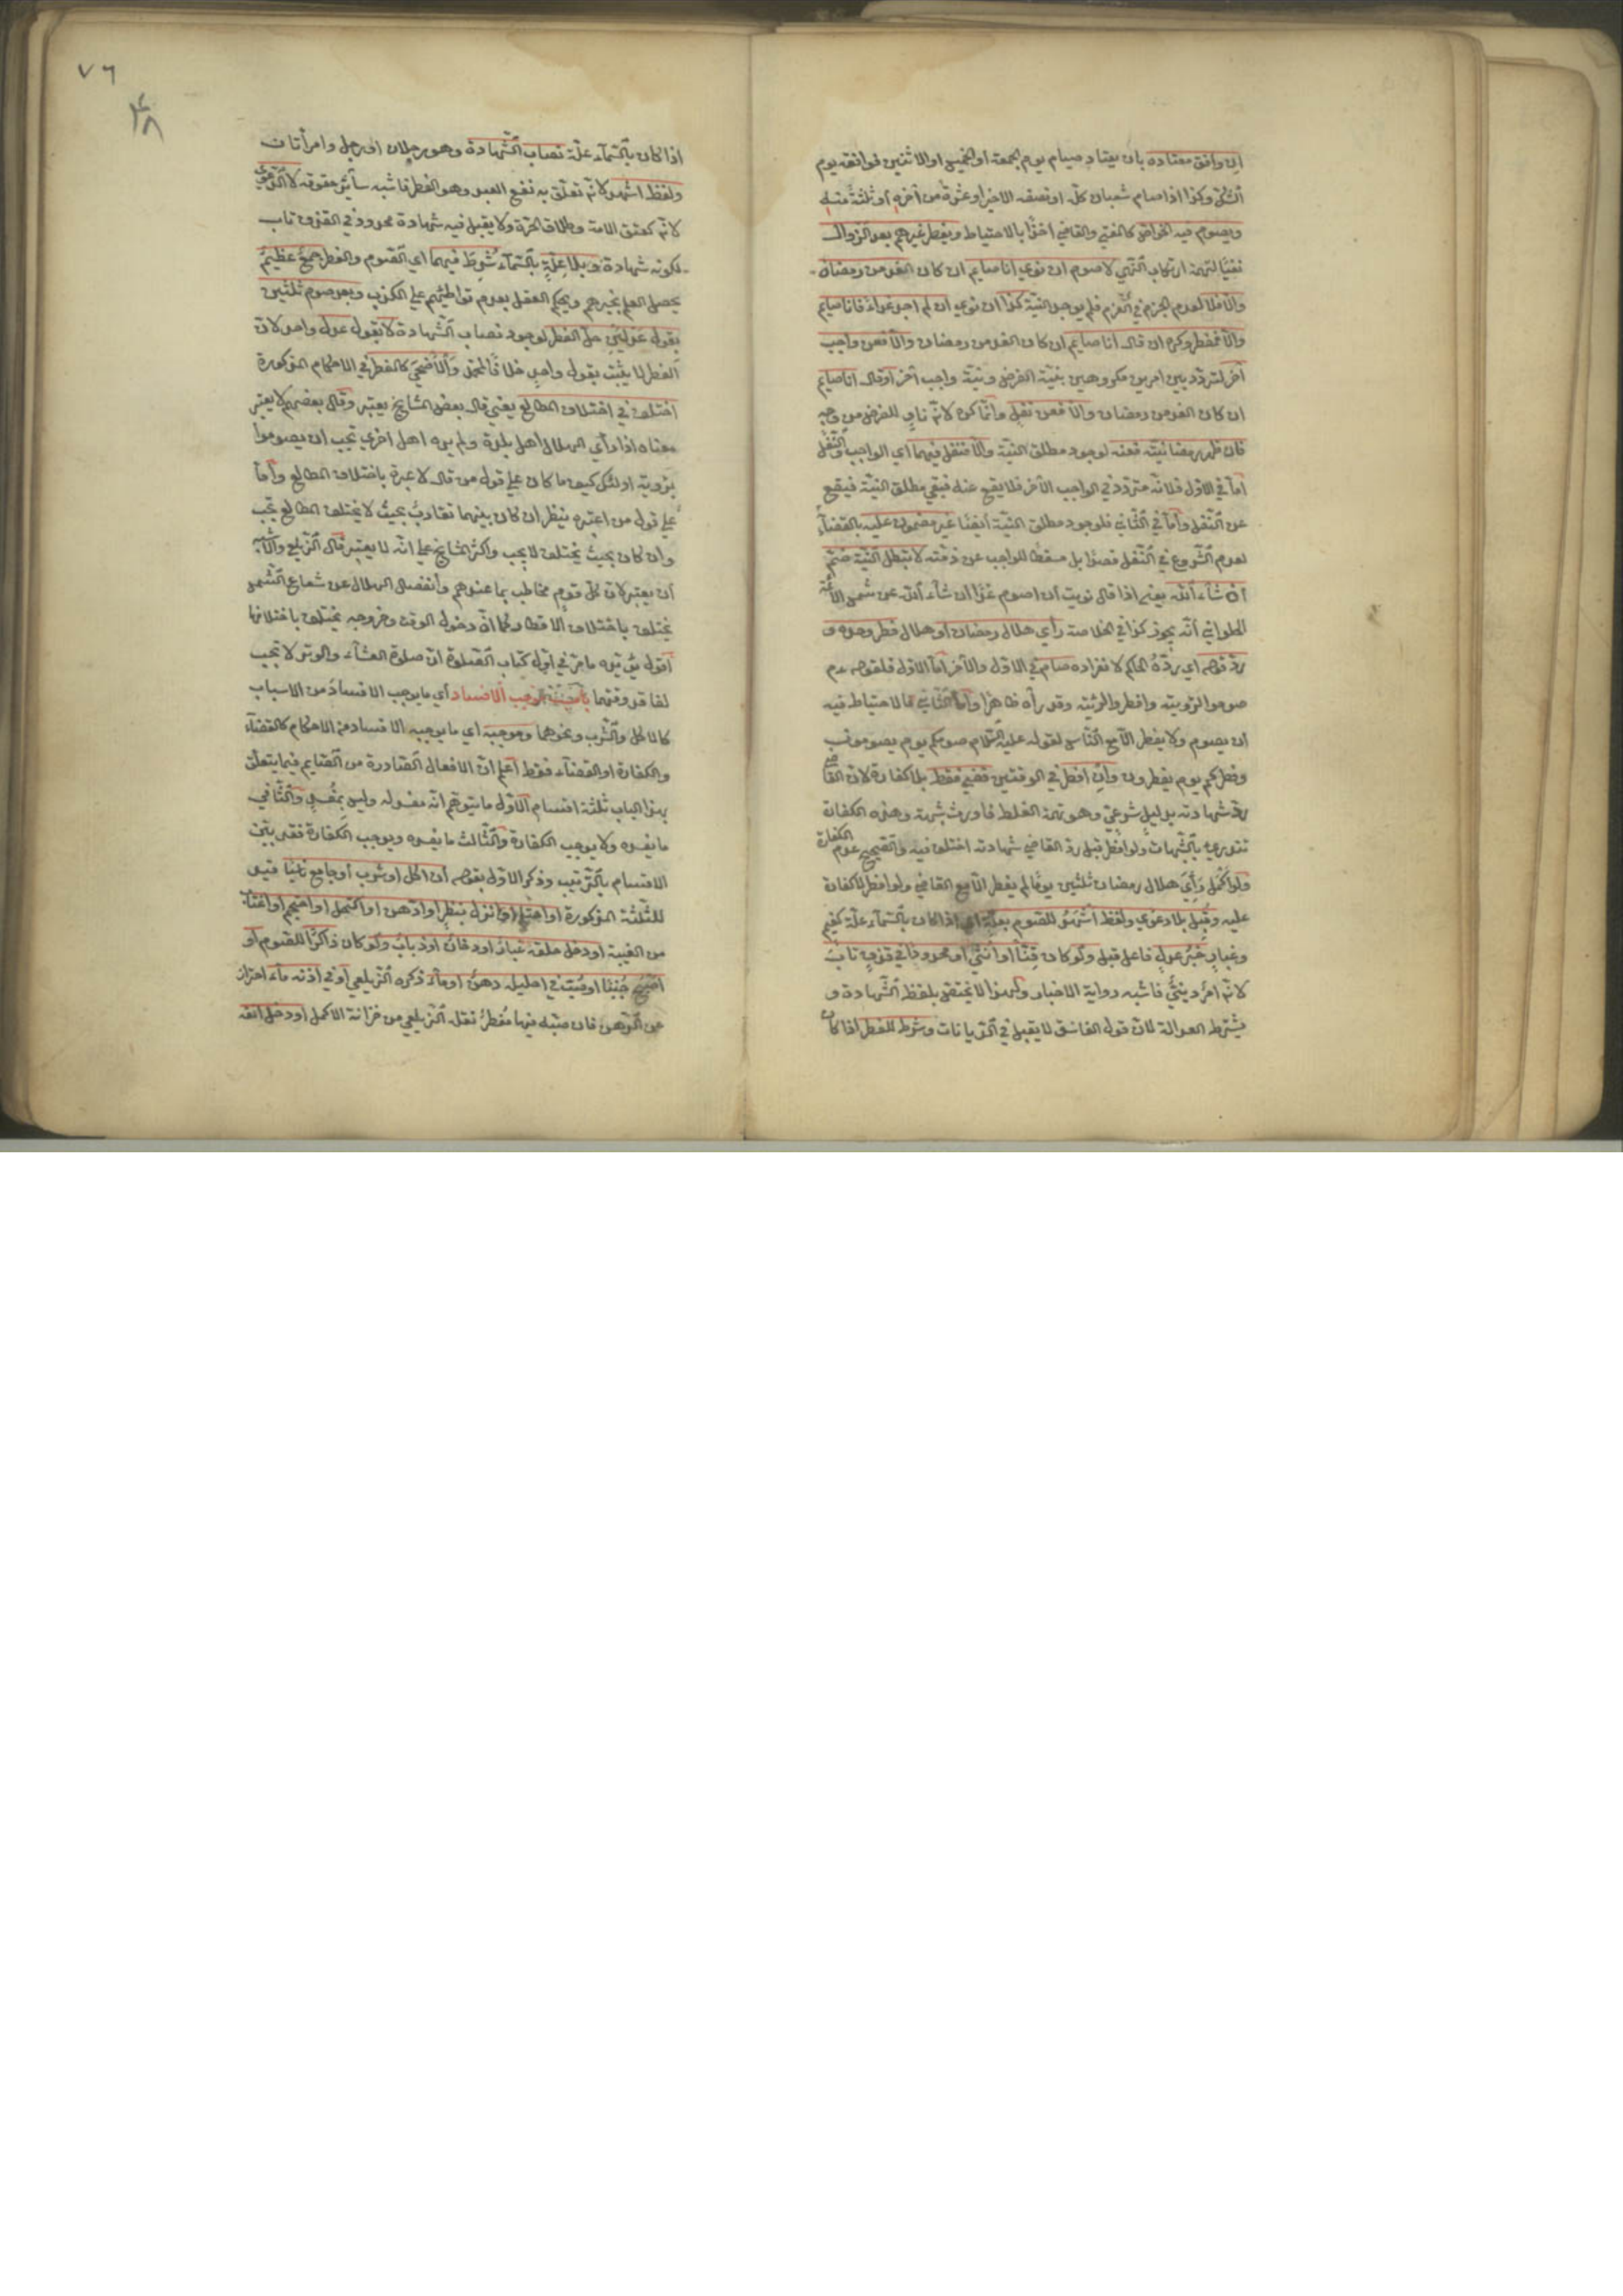 ان وافق معتاده بان يعتاد صيام يوم الجمعة او الخميس او الاثنين فوافقه يوم
الشك وكذا اذا صام شعبان كله او نصفه الاخير او عشرة من آخره أو ثلثة منه
ويصوم فيه الخواص كالمفتي والقاضي اخذا بالاحتياط ويفطر غيرهم بعد الزوال
نفيا لتهمة ارتكاب النهي لا صوم ان نوى انا صايم ان كان الغد من رمضان
والا فلا لعدم الجزم في العزم فلم يوجد النية كذا ان نوى ان لم اجد غداء فانا صايم
والا فمفطر وكره ان قال انا صايم ان كان الغد من رمضان والا فعن واجب
آخر لتردده بين امرين مكروهين بنية الفرض ونية واجب آخر او قال انا صايم
ان كان الغد من رمضان والا فعن نفل وانما كره لانه ناو للفرض من وجه
فان ظهر رمضانيته فعنه لوجود مطلق النية والا فنفل فيهما اي الواجب والنفل
اما في الاول فلانه متردد في الواجب الآخر فلا يقع عنه فبقي مطلق النية فيقع
عن النفل وأما في الثاني فلوجود مطلق النية أيضا غير مضمون عليه بالقضاء
لعدم الشروع في النفل قصدا بل مسقطا للواجب عن ذمته لا تبطل النية ضم
ان شاء الله يعني اذا قال نويت أن اصوم غدا ان شاء الله عن شمس الائمة
الحلواني أنه يجوز كذا في الخلاصة رأى هلال رمضان أو هلال فطر وحده و
رد قوله اي رده الحاكم لانفراده صام في الاول والآخر أما الاول فلقوله عم
صوموا لرؤيته وافطروا لرؤيته وقد رآه ظاهرا وأما الثاني فللاحتياط فيه
ان يصوم ولا يفطر الا مع الناس لقوله عليه السلام صومكم يوم يصومون
وفطركم يوم يفطرون وان افطر في الوقتين قضى فقط بلا كفارة لان القاضي
رد شهادته بدليل شرعي وهو تهمة الغلط فاورث شبهة وهذه الكفارة
تندرئ بالشبهات ولو افطر قبل رد القاضي شهادته اختلف فيه والصحيح عدم الكفارة
ولو اكمل رأي هلال رمضان ثلثين يوما لم يفطر الا مع القاضي ولو افطر لا كفارة
عليه وقبل بلا دعوى ولفظ أشهد للصوم بعلة اي اذا كان بالسماء علة كغيم
وغبار خبر عدل فاعل قبل ولو كان قنا أو أنثى أو محدودا في قذف تاب
لانه امر ديني فاشبه رواية الاخبار ولهذا لا يختص بلفظ الشهادة و
يشترط العدالة لان قول الفاسق لا يقبل في الديانات وشرط للفطر اذا كان
٧٦
اذا كان بالسماء علة نصاب الشهادة وهو رجلان او رجل وامرأتان
ولفظ اشهد لانه تعلق به نفع العبد وهو الفطر فاشبه سائر حقوقه لا الدعوى
لانه كعتق الامة وطلاق الحرة ولا يقبل فيه شهادة محدود في القذف تاب
لكونه شهادة وبلا علة بالسماء شرط فيهما اي الصوم والفطر جمع عظيم
يحصل العلم بخبرهم ويحكم العقل بعدم تواطئهم على الكذب وبعد صوم ثلثين
بقول عدلين حل الفطر لوجود نصاب الشهادة لا بقول عدل واحد لان
الفطر لا يثبت بقول واحد خلافا لمحمد والأضحى كالفطر في الاحكام المذكورة
اختلف في اختلاف المطالع يعني قال بعض المشايخ يعتبر وقال بعضهم لا يعتبر
معناه اذا رأى الهلال اهل بلدة ولم يره اهل اخرى يجب ان يصوموا
برؤية اولئك كيف ما كان على قول من قال لا عبرة باختلاف المطالع وأما
على قول من اعتبره ينظر ان كان بينهما تقارب بحيث لا يختلف المطالع يجب
وان كان بحيث يختلف لا يجب واكثر المشايخ على انه لا يعتبر قال الزيلعي والاشبه
أن يعتبر لان كل قوم مخاطب بما عندهم وأنفصال الهلال عن شعاع الشمس
يختلف باختلاف الاقطار كما ان دخول الوقت وخروجه يختلف باختلافها
أقول يؤيده ما مر في اول كتاب الصلوة ان صلوة العشاء والوتر لا تجب
لفاقد وقتهما باب موجب الافساد أي ما يوجب الافساد من الاسباب
كالاكل والشرب ونحوهما وموجبه اي ما يوجبه الافساد من الاحكام كالقضاء
والكفارة او القضاء فقط اعلم ان الافعال الصادرة من الصايم فيما يتعلق
بهذا الباب ثلثة اقسام الاول ما يتوهم انه مفسد وليس بمفسد والثاني
ما يفسده ولا يوجب الكفارة والثالث ما يفسده ويوجب الكفارة فقد بين
الاقسام بالترتيب وذكر الاول بقوله أن اكل او شرب أو جامع ناسيا قيد
للثلثة المذكورة او احتلم او انزل بنظر او ادهن او اكتحل او احتجم او اغتاب
من الغيبة او دخل حلقه غبار او دخان او ذباب ولو كان ذاكرا للصوم او
اصبح جنبا او صب في احليله دهن او ماء ذكره الزيلعي أو في اذنه ماء احتراز
عن الدهن فان صبه فيها مفطر نقله الزيلعي من خزانة الاكمل او دخل انفه